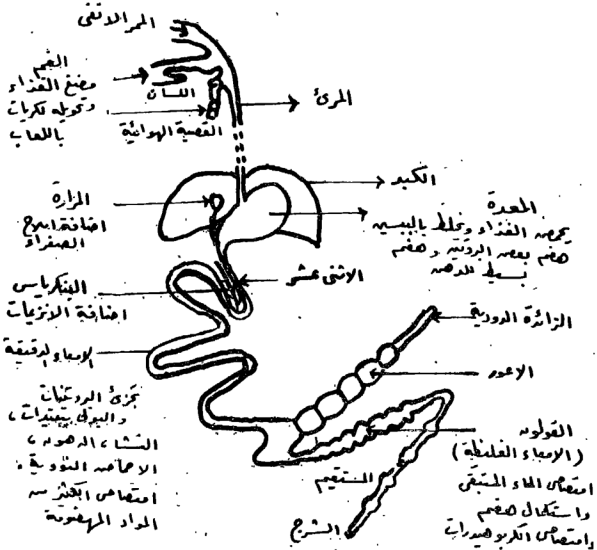 الممر الانفى
الفم
مضغ الغذاء
وتحويله لكريات
باللعاب
اللسان
القصبة الهوائية
المرئ
الكبد
المرارة
اضافة املاح
الصفراء
المعدة
يحمض الغذاء ويخلط بالببسين
هضم بعض البروتين وهضم
بسيط للدهن
الاثنى عشر
البنكرياس
اضافة الانزيمات
الامعاء الدقيقة
تجزئ البروتينات
والبولى ببتيدات،
النشا، الدهون،
الاحماض النووية.
امتصاص الكثير من
المواد المهضومة
الزائدة الدودية
الاعور
القولون
(الامعاء الغليظة)
امتصاص الماء المتبقى
واستكمال هضم
وامتصاص الكربوهيدرات
المستقيم
الشرج